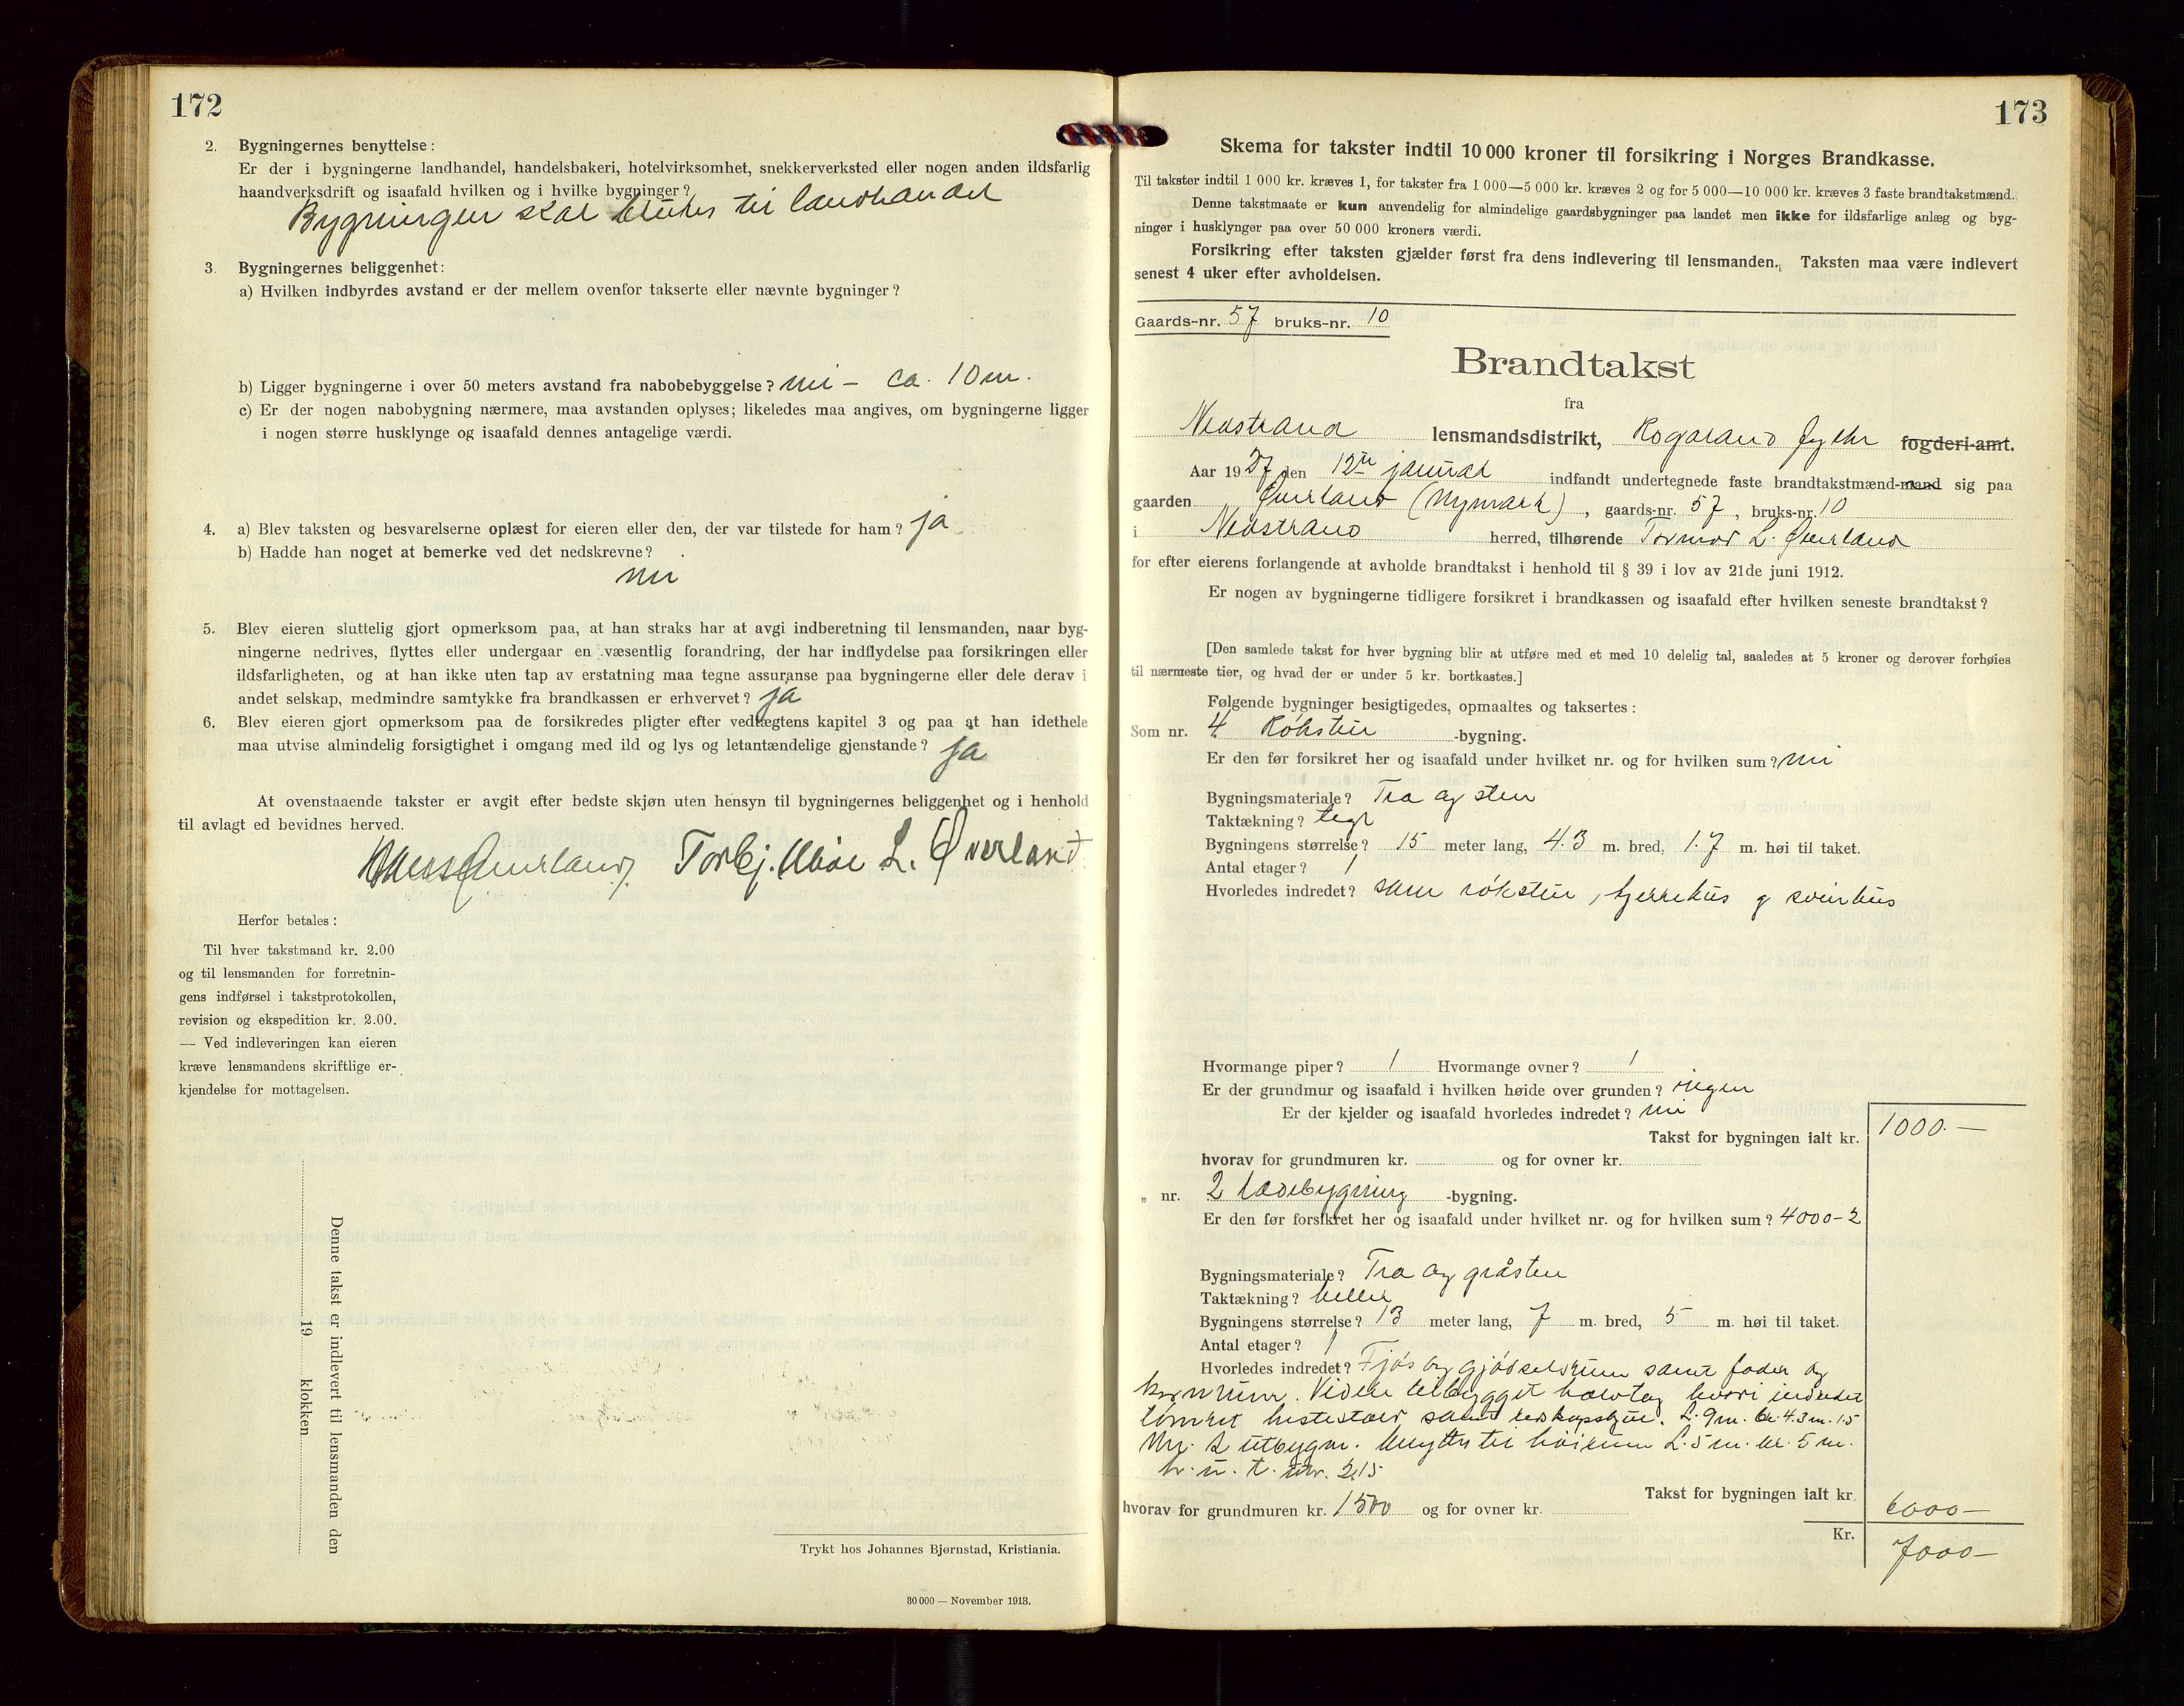 172
2. Bygningernes benyttelse:
Er der i bygningerne landhandel, handelsbakeri, hotelvirksomhet, snekkerverksted eller nogen anden ildsfarlig
haandverksdrift og isaafald hvilken og i hvilke bygninger?
Bygningen skal blutes til landhandel
3. Bygningernes beliggenhet:
a) Hvilken indbyrdes avstand er der mellem ovenfor takserte eller nævnte bygninger?
b) Ligger bygningerne i over 50 meters avstand fra nabobebyggelse? nei – ca. 10 m.
c) Er der nogen nabobygning nærmere, maa avstanden oplyses; likeledes maa angives, om bygningerne ligger
i nogen større husklynge og isaafald dennes antagelige værdi.
4. a) Blev taksten og besvarelserne oplæst for eieren eller den, der var tilstede for ham? ja
b) Hadde han noget at bemerke ved det nedskrevne?
nei
5. Blev eieren sluttelig gjort opmerksom paa, at han straks har at avgi indberetning til lensmanden, naar byg-
ningerne nedrives, flyttes eller undergaar en væsentlig forandring, der har indflydelse paa forsikringen eller
ildsfarligheten, og at han ikke uten tap av erstatning maa tegne assuranse paa bygningerne eller dele derav i
andet selskap, medmindre samtykke fra brandkassen er erhvervet? ja
6. Blev eieren gjort opmerksom paa de forsikredes pligter efter vedtægtens kapitel 3 og paa at han idethele
maa utvise almindelig forsigtighet i omgang med ild og lys og letantændelige gjenstande? ja
At ovenstaaende takster er avgit efter bedste skjøn uten hensyn til bygningernes beliggenhet og i henhold
til avlagt ed bevidnes herved.
Øverland Torbj. L. Øverland
Herfor betales:
Til hver takstmand kr. 2.00
og til lensmanden for forretnin-
gens indførsel i takstprotokollen,
revision og ekspedition kr. 2.00.
— Ved indleveringen kan eieren
kræve lensmandens skriftlige er-
kjendelse for mottagelsen.
Denne takst er indlevert til lensmanden den
19 klokken
Trykt hos Johannes Bjørnstad, Kristiania.
30 000 — November 1913.
173
Skema for takster indtil 10 000 kroner til forsikring i Norges Brandkasse.
Til takster indtil 1 000 kr. kræves 1, for takster fra 1 000—5 000 kr. kræves 2 og for 5 000—10 000 kr. kræves 3 faste brandtakstmænd.
Denne takstmaate er kun anvendelig for almindelige gaardsbygninger paa landet men ikke for ildsfarlige anlæg og byg-
ninger i husklynger paa over 50 000 kroners værdi.
Forsikring efter taksten gjælder først fra dens indlevering til lensmanden. Taksten maa være indlevert
senest 4 uker efter avholdelsen.
Gaards-nr. 57 bruks-nr. 10
Brandtakst
fra
Nedstrand lensmandsdistrikt, Rogaland fylke fogderi-amt.
Aar 1927 den 12te januar indfandt undertegnede faste brandtakstmænd-mand sig paa
gaarden Øverland (Nymark), gaards-nr. 57, bruks-nr. 10
i Nedstrand herred, tilhørende Tormod L. Øverland
for efter eierens forlangende at avholde brandtakst i henhold til § 39 i lov av 21de juni 1912.
Er nogen av bygningerne tidligere forsikret i brandkassen og isaafald efter hvilken seneste brandtakst?
[Den samlede takst for hver bygning blir at utføre med et med 10 delelig tal, saaledes at 5 kroner og derover forhøies
til nærmeste tier, og hvad der er under 5 kr. bortkastes.]
Følgende bygninger besigtigedes, opmaaltes og taksertes:
Som nr. 4 Røkstue -bygning.
Er den før forsikret her og isaafald under hvilket nr. og for hvilken sum? nei
Bygningsmateriale? Træ og sten
Taktækning? tegl
Bygningens størrelse? 15 meter lang, 4.3 m. bred, 1.7 m. høi til taket.
Antal etager? 1
Hvorledes indredet? som røkstue, kjerrehus og svinhus
Hvormange piper? 1 Hvormange ovner? 1
Er der grundmur og isaafald i hvilken høide over grunden? ingen
Er der kjelder og isaafald hvorledes indredet? nei
Takst for bygningen ialt kr. 1000.—
hvorav for grundmuren kr. og for ovner kr.
„ nr. 2 Ladebygning -bygning.
Er den før forsikret her og isaafald under hvilket nr. og for hvilken sum? 4000-2
Bygningsmateriale? Træ og gråsten
Taktækning? heller
Bygningens størrelse? 13 meter lang, 7 m. bred, 5 m. høi til taket.
Antal etager? 1
Hvorledes indredet? Fjøs og gjødselsrum samt foder og
kornrum. Videre tilbygget halvtag hvori indredet
tømret hestestald samt redskapshue. L. 9 m. br. 4.3 m. 1.5
Ny. 2 utbygn. benyttes til høirum L. 5 m. br. 5 m.
h. u. t. 2.15
Takst for bygningen ialt kr. 6000—
hvorav for grundmuren kr. 1500 og for ovner kr.
Kr. 7000—